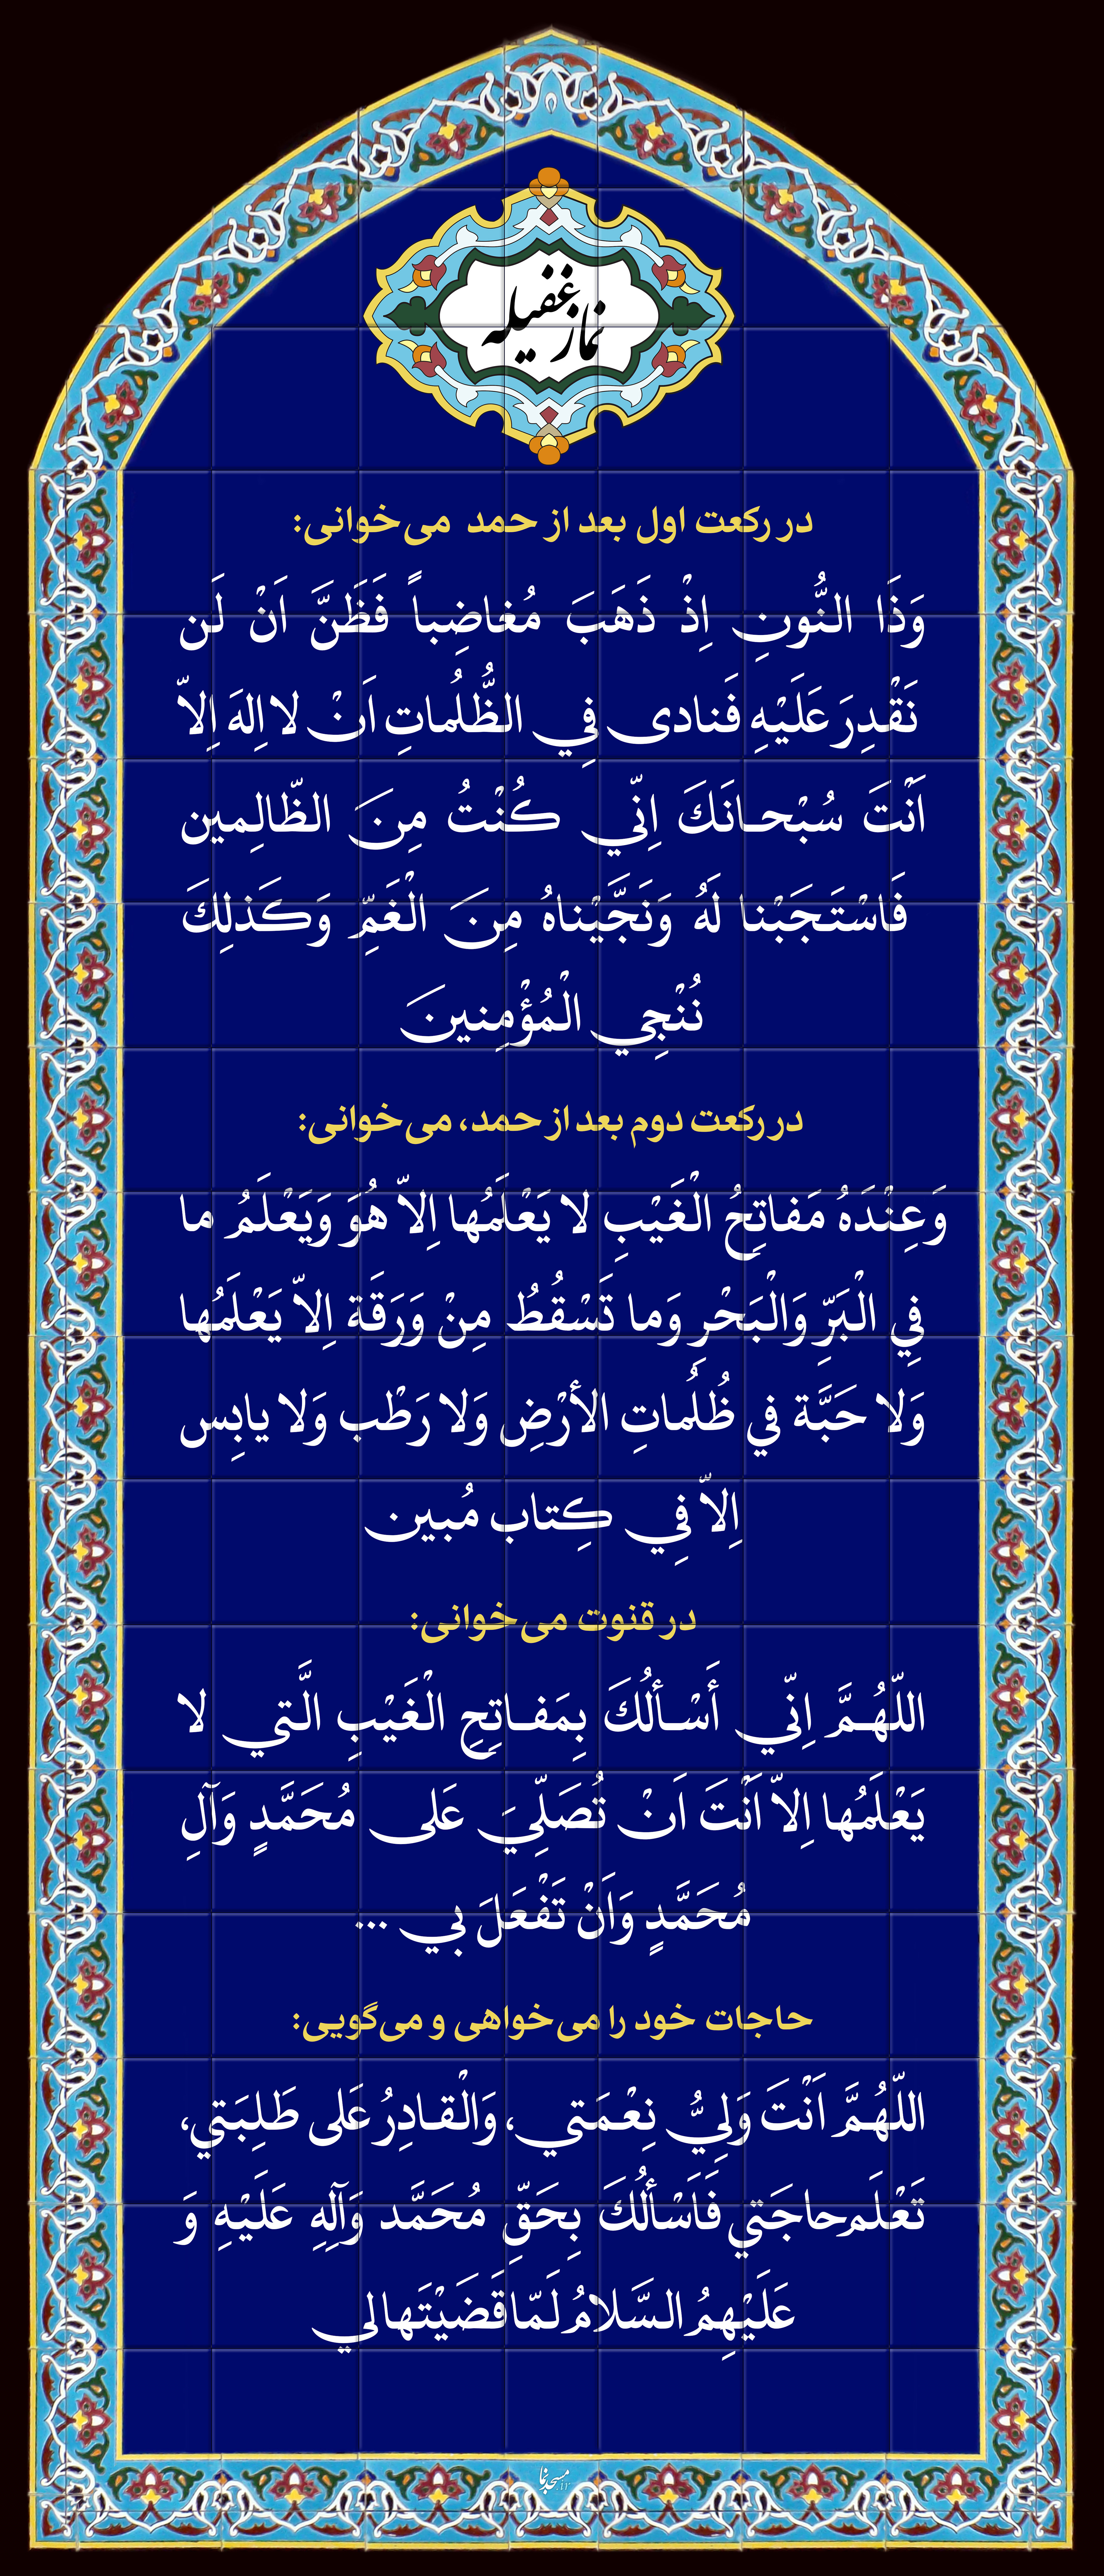 نماز غفیله
در رکعت اول بعد از حمد می‌خوانی:
وَذَا النُّونِ اِذْ ذَهَبَ مُغاضِباً فَظَنَّ اَنْ لَن
نَقْدِرَ عَلَيْهِ فَنادى فِي الظُّلُماتِ اَنْ لا اِلهَ اِلاّ
اَنْتَ سُبْحانَكَ اِنّي كُنْتُ مِنَ الظّالِمين
فَاسْتَجَبْنا لَهُ وَنَجَّيْناهُ مِنَ الْغَمِّ وَكَذلِكَ
نُنْجِي الْمُؤْمِنينَ
در رکعت دوم بعد از حمد، می‌خوانی:
وَعِنْدَهُ مَفاتِحُ الْغَيْبِ لا يَعْلَمُها اِلاّ هُوَ وَيَعْلَمُ ما
فِي الْبَرِّ وَالْبَحْرِ وَما تَسْقُطُ مِنْ وَرَقَة اِلاّ يَعْلَمُها
وَلا حَبَّة في ظُلُماتِ الأرْضِ وَلا رَطْب وَلا يابِس
اِلاّ فِي كِتاب مُبين
در قنوت می‌خوانی:
اللّهُمَّ اِنّي أَسْألُكَ بِمَفاتِحِ الْغَيْبِ الَّتي لا
يَعْلَمُها اِلاّ اَنْتَ اَنْ تُصَلِّيَ عَلى مُحَمَّدٍ وَآلِ
مُحَمَّدٍ وَاَنْ تَفْعَلَ بي ...
حاجات خود را می‌خواهی و می‌گویی:
اللّهُمَّ اَنْتَ وَلِيُّ نِعْمَتي، وَالْقادِرُ عَلى طَلِبَتي،
تَعْلَم حاجَتي فَاَسْألُكَ بِحَقِّ مُحَمَّد وَآلِهِ عَلَيْهِ وَ
عَلَيْهِمُ السَّلامُ لَمّا قَضَيْتَها لي
مسجدنما